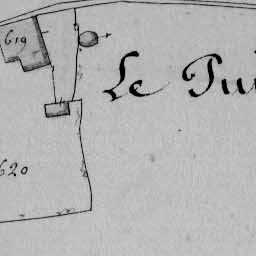 619
Le Pui
620